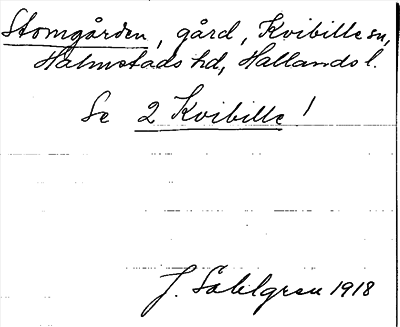 Stomgården, gård, Kvibille sn,
Halmstads hd, Hallands l.
Se 2 Kvibille!
J. Sahlgren 1918